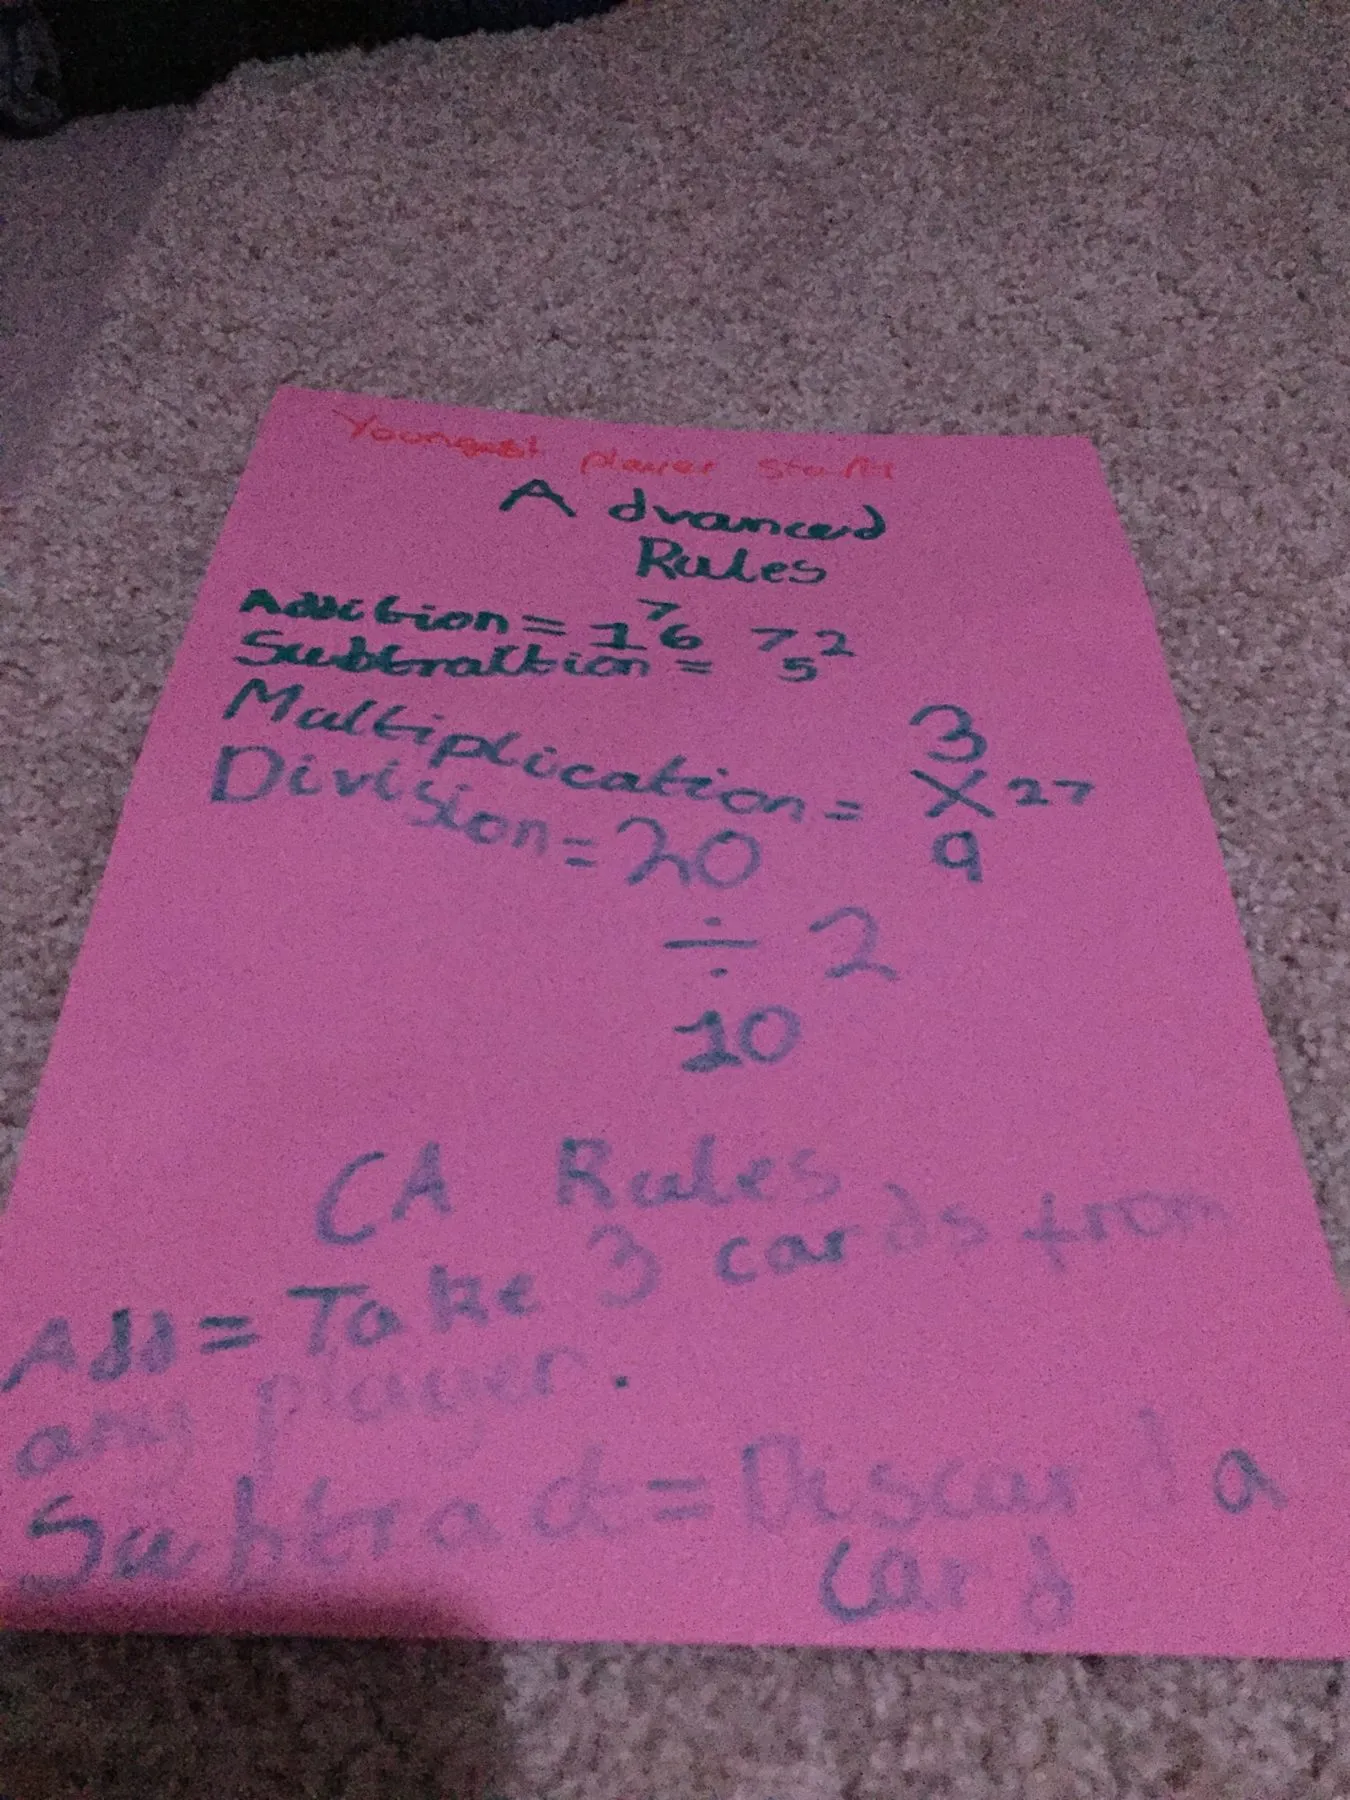 Youngest player starts
Advanced
Rules
Addition = 1 7 6
Subtraction = 7 5 2
Multiplication = 3 X 9 27
Division = 20 ÷ 10 2
CA Rules
Add = Take 3 cards from
any player.
Subtract = Discard a
card